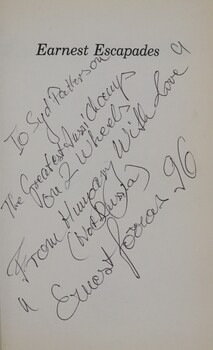 Earnest Escapades
To Syd Patterson
The Greatest Aussi Champ
on 2 Wheels
From Hungary With Love
(Not Russia)
Ernest 96